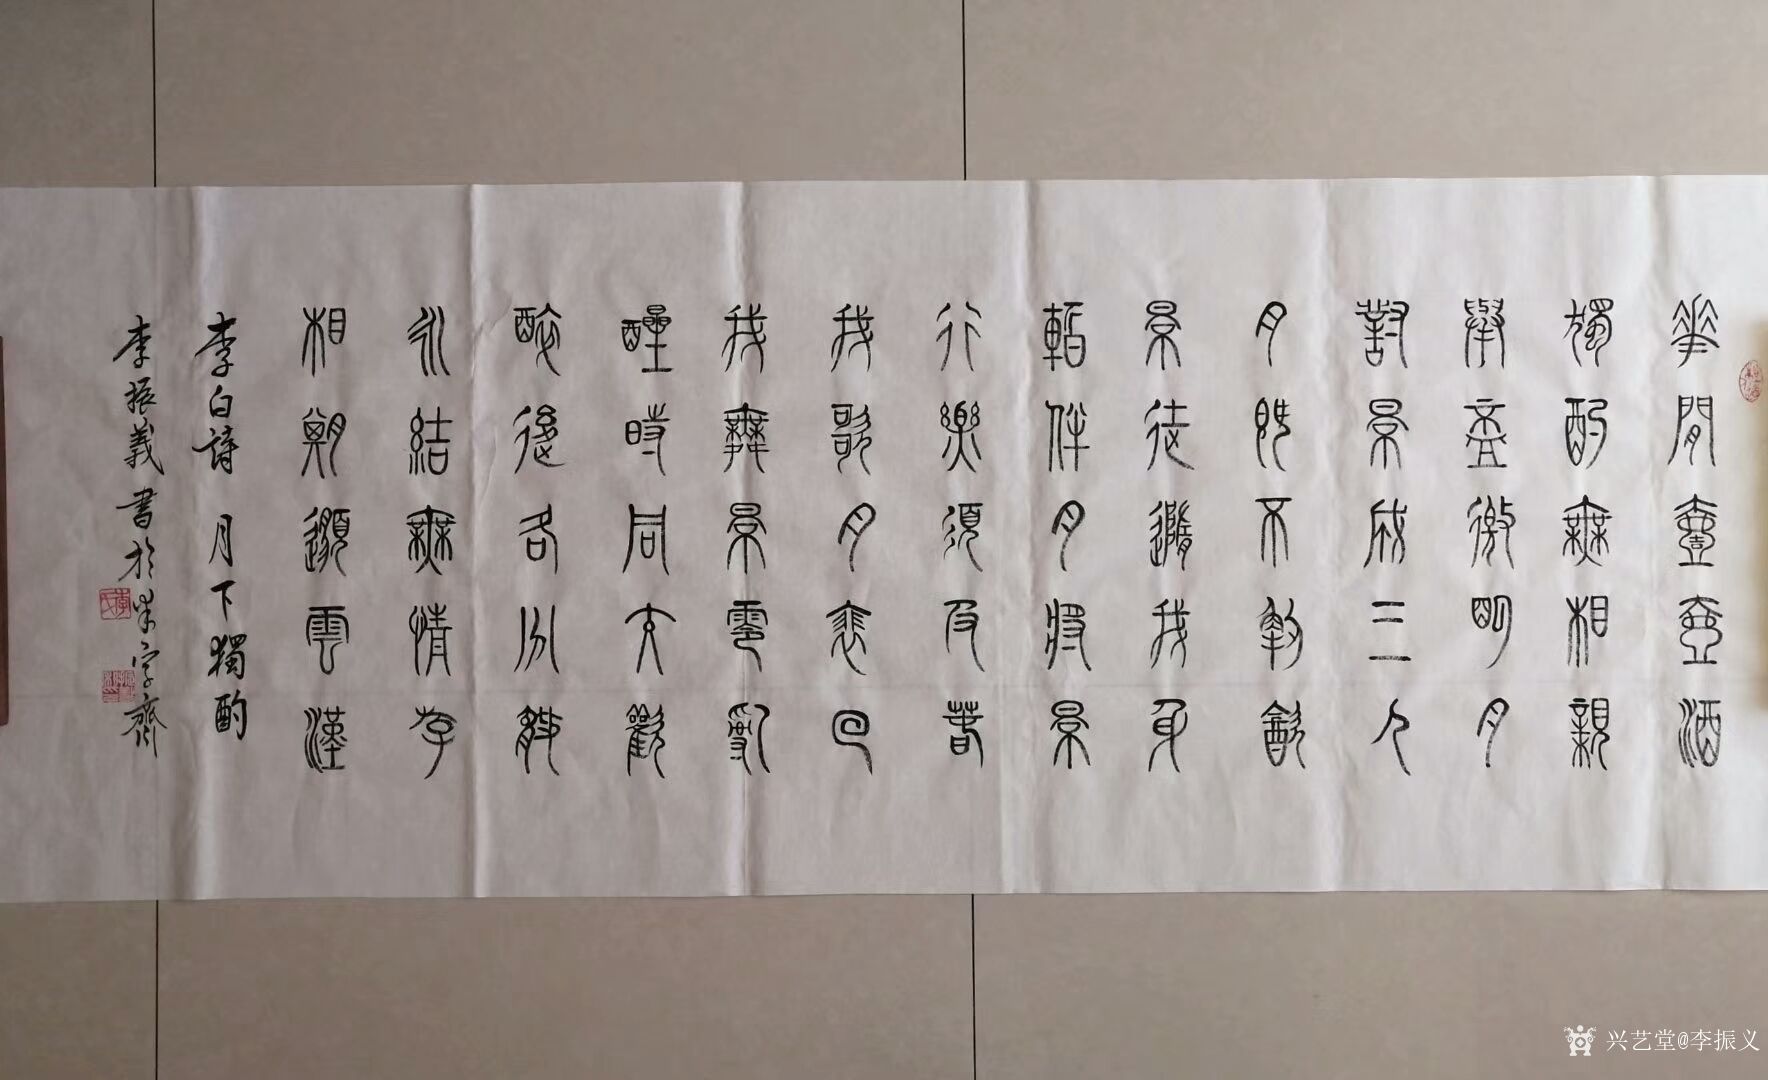 華閒壹壺酒
獨酌無相親
舉盃徼明月
對景成三人
月既不解飲
景徒隨我身
暫伴月將景
行樂須及春
我歌月裵回
我舞景零亂
醒時同交歡
醉後各分散
永結無情斿
相期邈雲漢
李白詩 月下獨酌
李振義書於字齋
兴艺堂@李振义